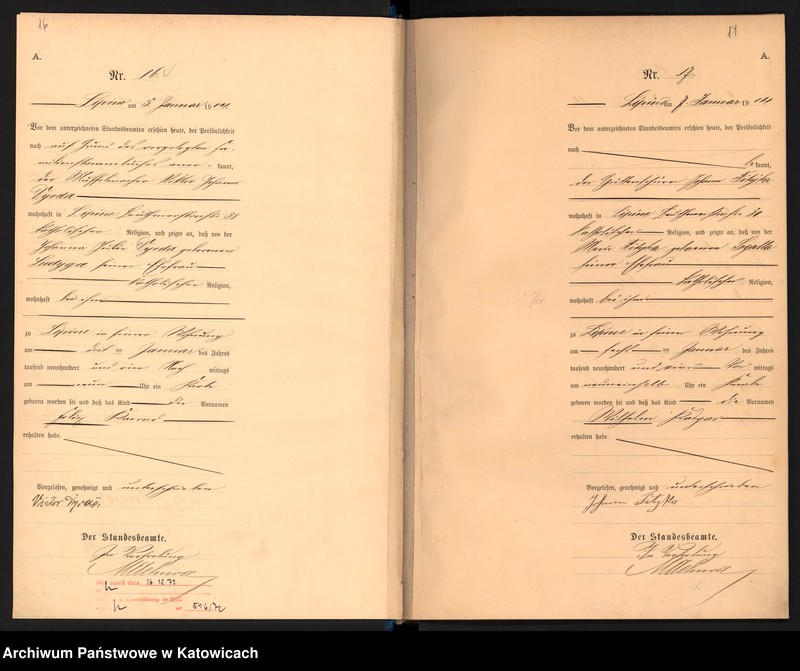 16
A.
Nr. 16.
Lipine am 5. Januar 1904.
Vor dem unterzeichneten Standesbeamten erschien heute, der Persönlichkeit
nach auf Grund des vorgelegten Fa-
milienstammbuches aner- kannt,
der Johann
Dyrda
wohnhaft in Lipine
katholischer Religion, und zeigte an, daß von der
Johanna Julie Dyrda geborenen
seiner Ehefrau
katholischer Religion,
wohnhaft bei ihm
zu Lipine in seiner Wohnung
am drit ten Januar des Jahres
tausend neunhundert und vier Nach mittags
um neun Uhr ein Knabe
geboren worden sei und daß das Kind die Vornamen
Felix Konrad
erhalten habe.
Vorgelesen, genehmigt und unterschrieben
Victor Dyrda
Der Standesbeamte.
In Vertretung
16.12.72
546/72
17
A.
Nr. 17
Lipine am 7. Januar 1904
Vor dem unterzeichneten Standesbeamten erschien heute, der Persönlichkeit
nach be kannt,
der Johann
wohnhaft in Lipine
katholischer Religion, und zeigte an, daß von der
Marie geborenen
seiner Ehefrau
katholischer Religion,
wohnhaft bei ihm
zu Lipine in seiner Wohnung
am sechs ten Januar des Jahres
tausend neunhundert und vier Vor mittags
um neuneinhalb Uhr ein Knabe
geboren worden sei und daß das Kind die Vornamen
Wilhelm
erhalten habe.
Vorgelesen, genehmigt und unterschrieben
Johann
Der Standesbeamte.
In Vertretung
Archiwum Państwowe w Katowicach